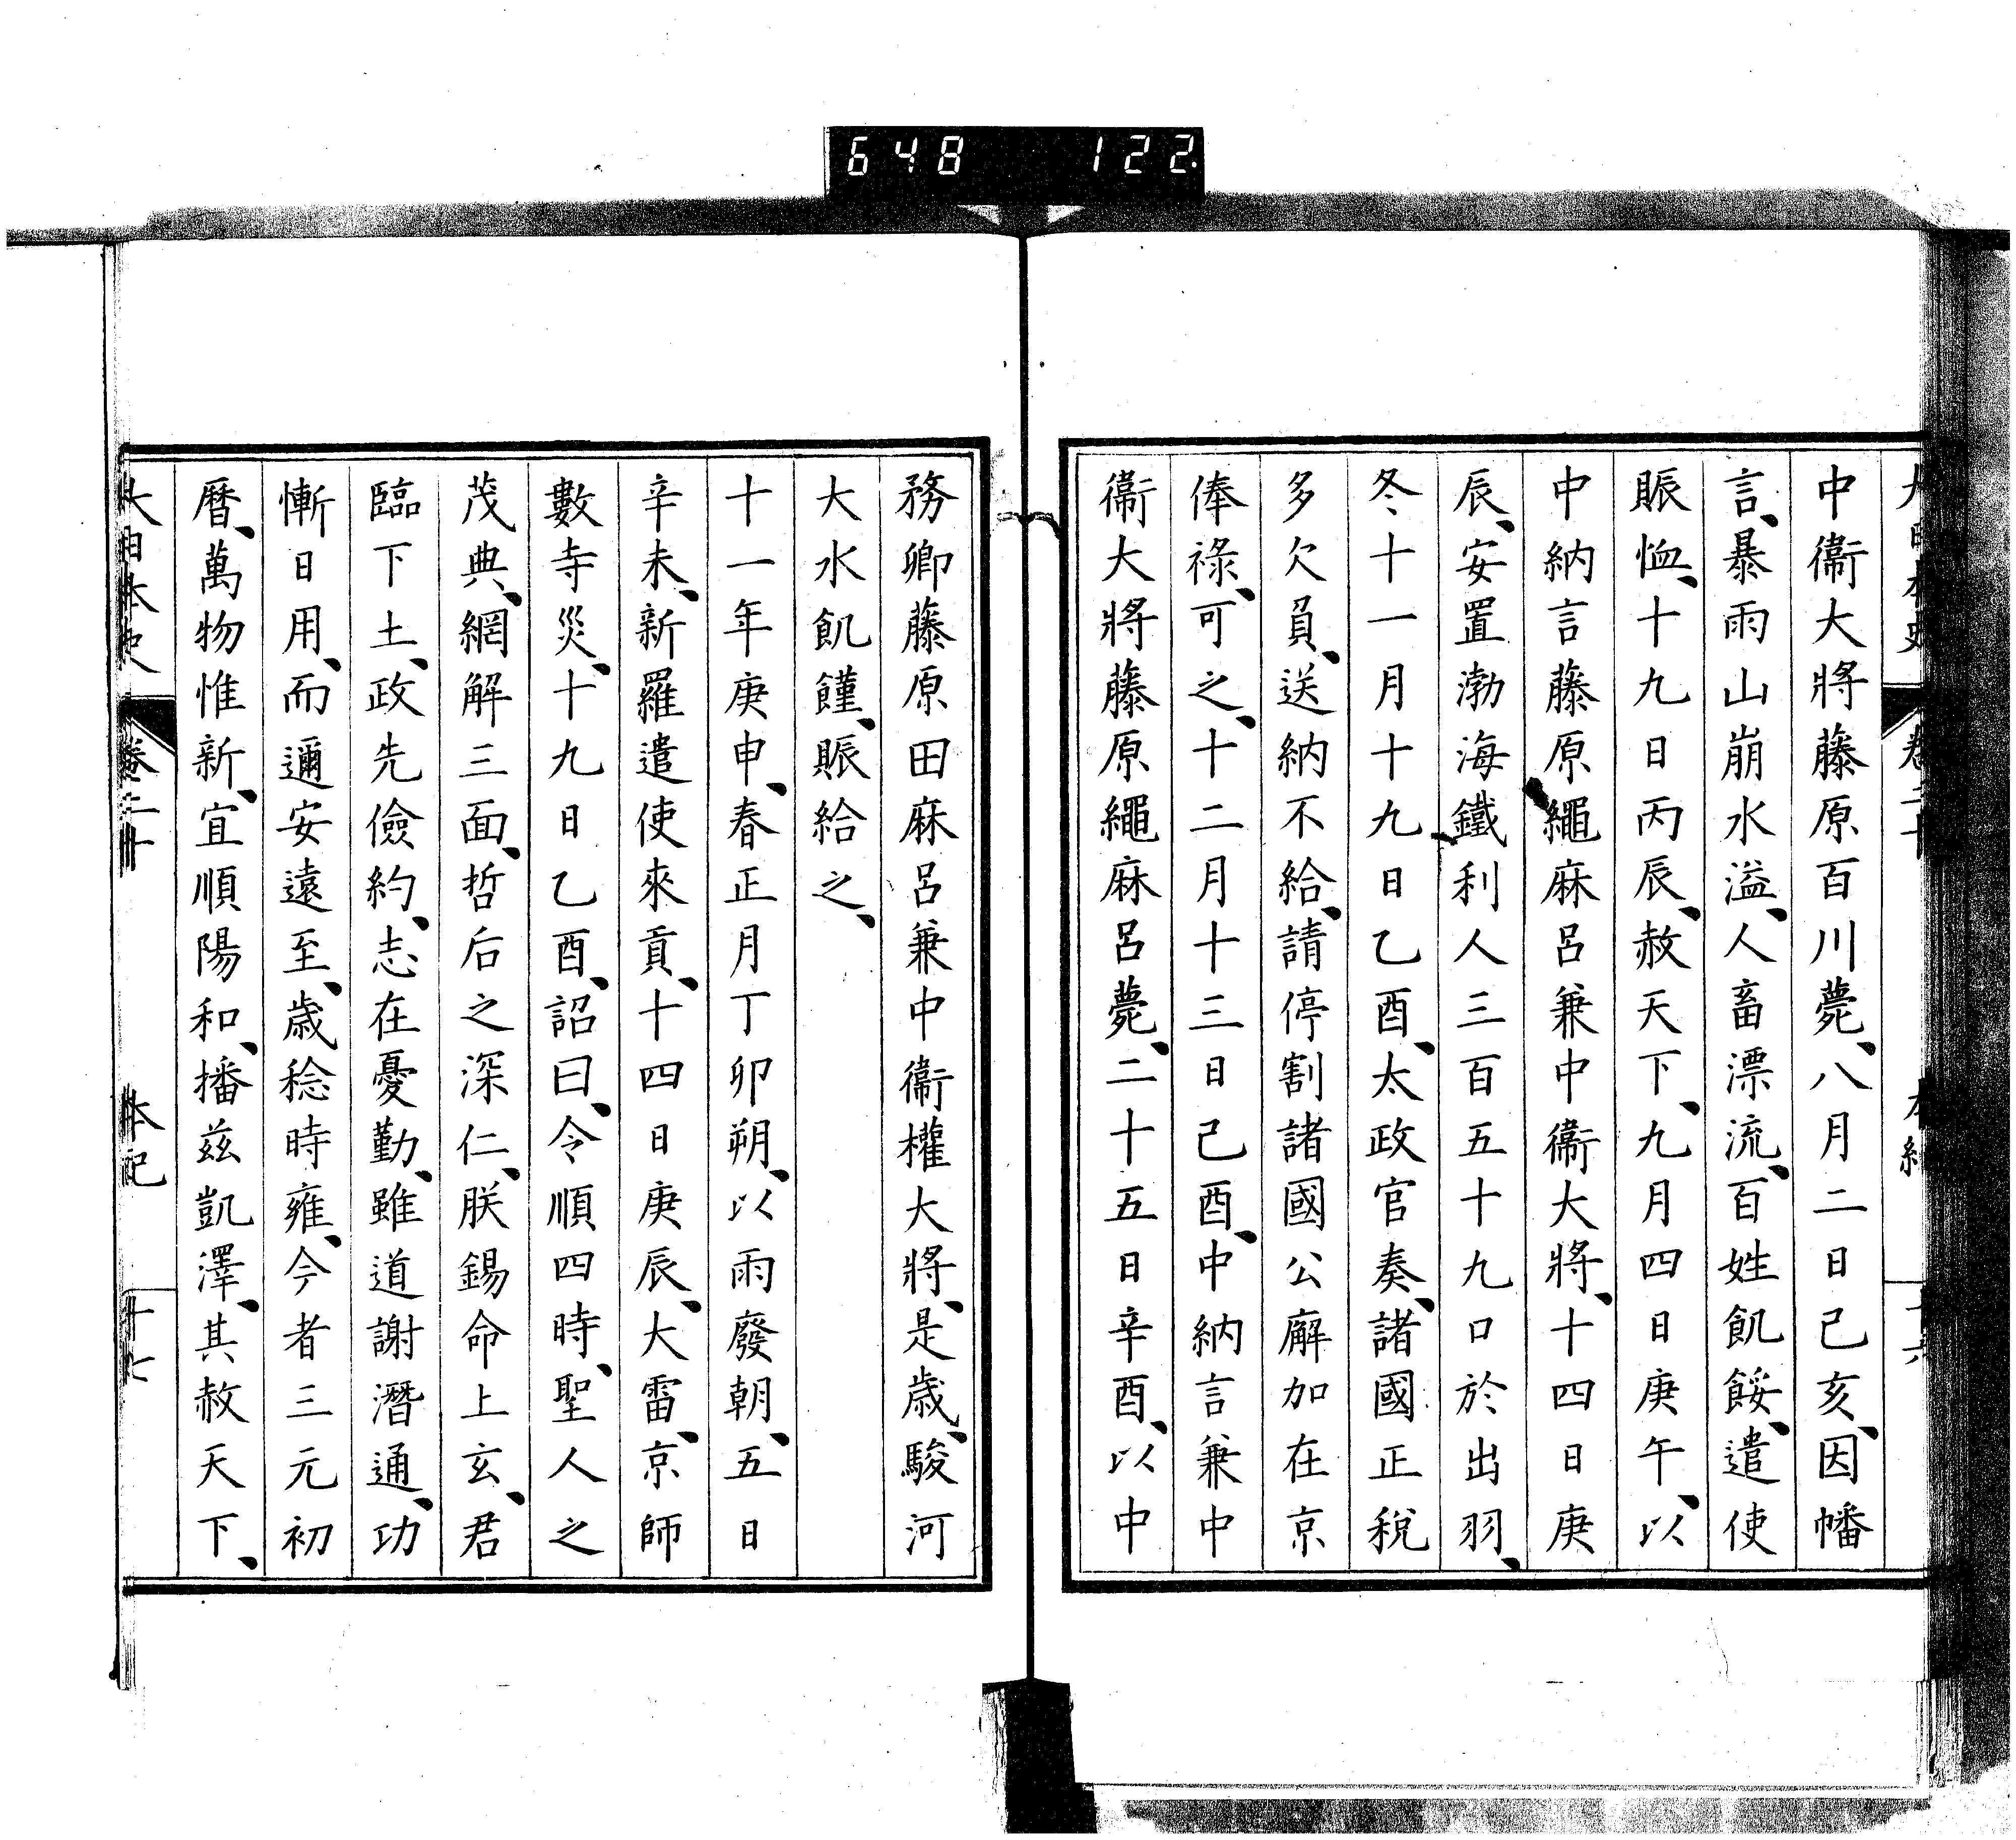 648 122
中衞大將藤原百川薨、八月二日己亥、因幡
言、暴雨山崩水溢、人畜漂流、百姓飢餒、遣使
賑恤、十九日丙辰、赦天下、九月四日庚午、以
中納言藤原繩麻呂兼中衞大將、十四日庚
辰、安置渤海鐵利人三百五十九口於出羽、
冬十一月十九日乙酉、太政官奏、諸國正稅
多欠負、送納不給、請停割諸國公廨加在京
俸祿、可之、十二月十三日己酉、中納言兼中
衞大將藤原繩麻呂薨、二十五日辛酉、以中
務卿藤原田麻呂兼中衞權大將、是歳、駿河
大水飢饉、賑給之、
十一年庚申、春正月丁卯朔、以雨廢朝、五日
辛未、新羅遣使來貢、十四日庚辰、大雷、京師
數寺災、十九日乙酉、詔曰、令順四時、聖人之
茂典、網解三面、哲后之深仁、朕錫命上玄、君
臨下土、政先儉約、志在憂勤、雖道謝潛通、功
慚日用、而邇安遠至、歳稔時雍、今者三元初
曆、萬物惟新、宜順陽和、播茲凱澤、其赦天下、
大日本史 卷二十 本紀 十七